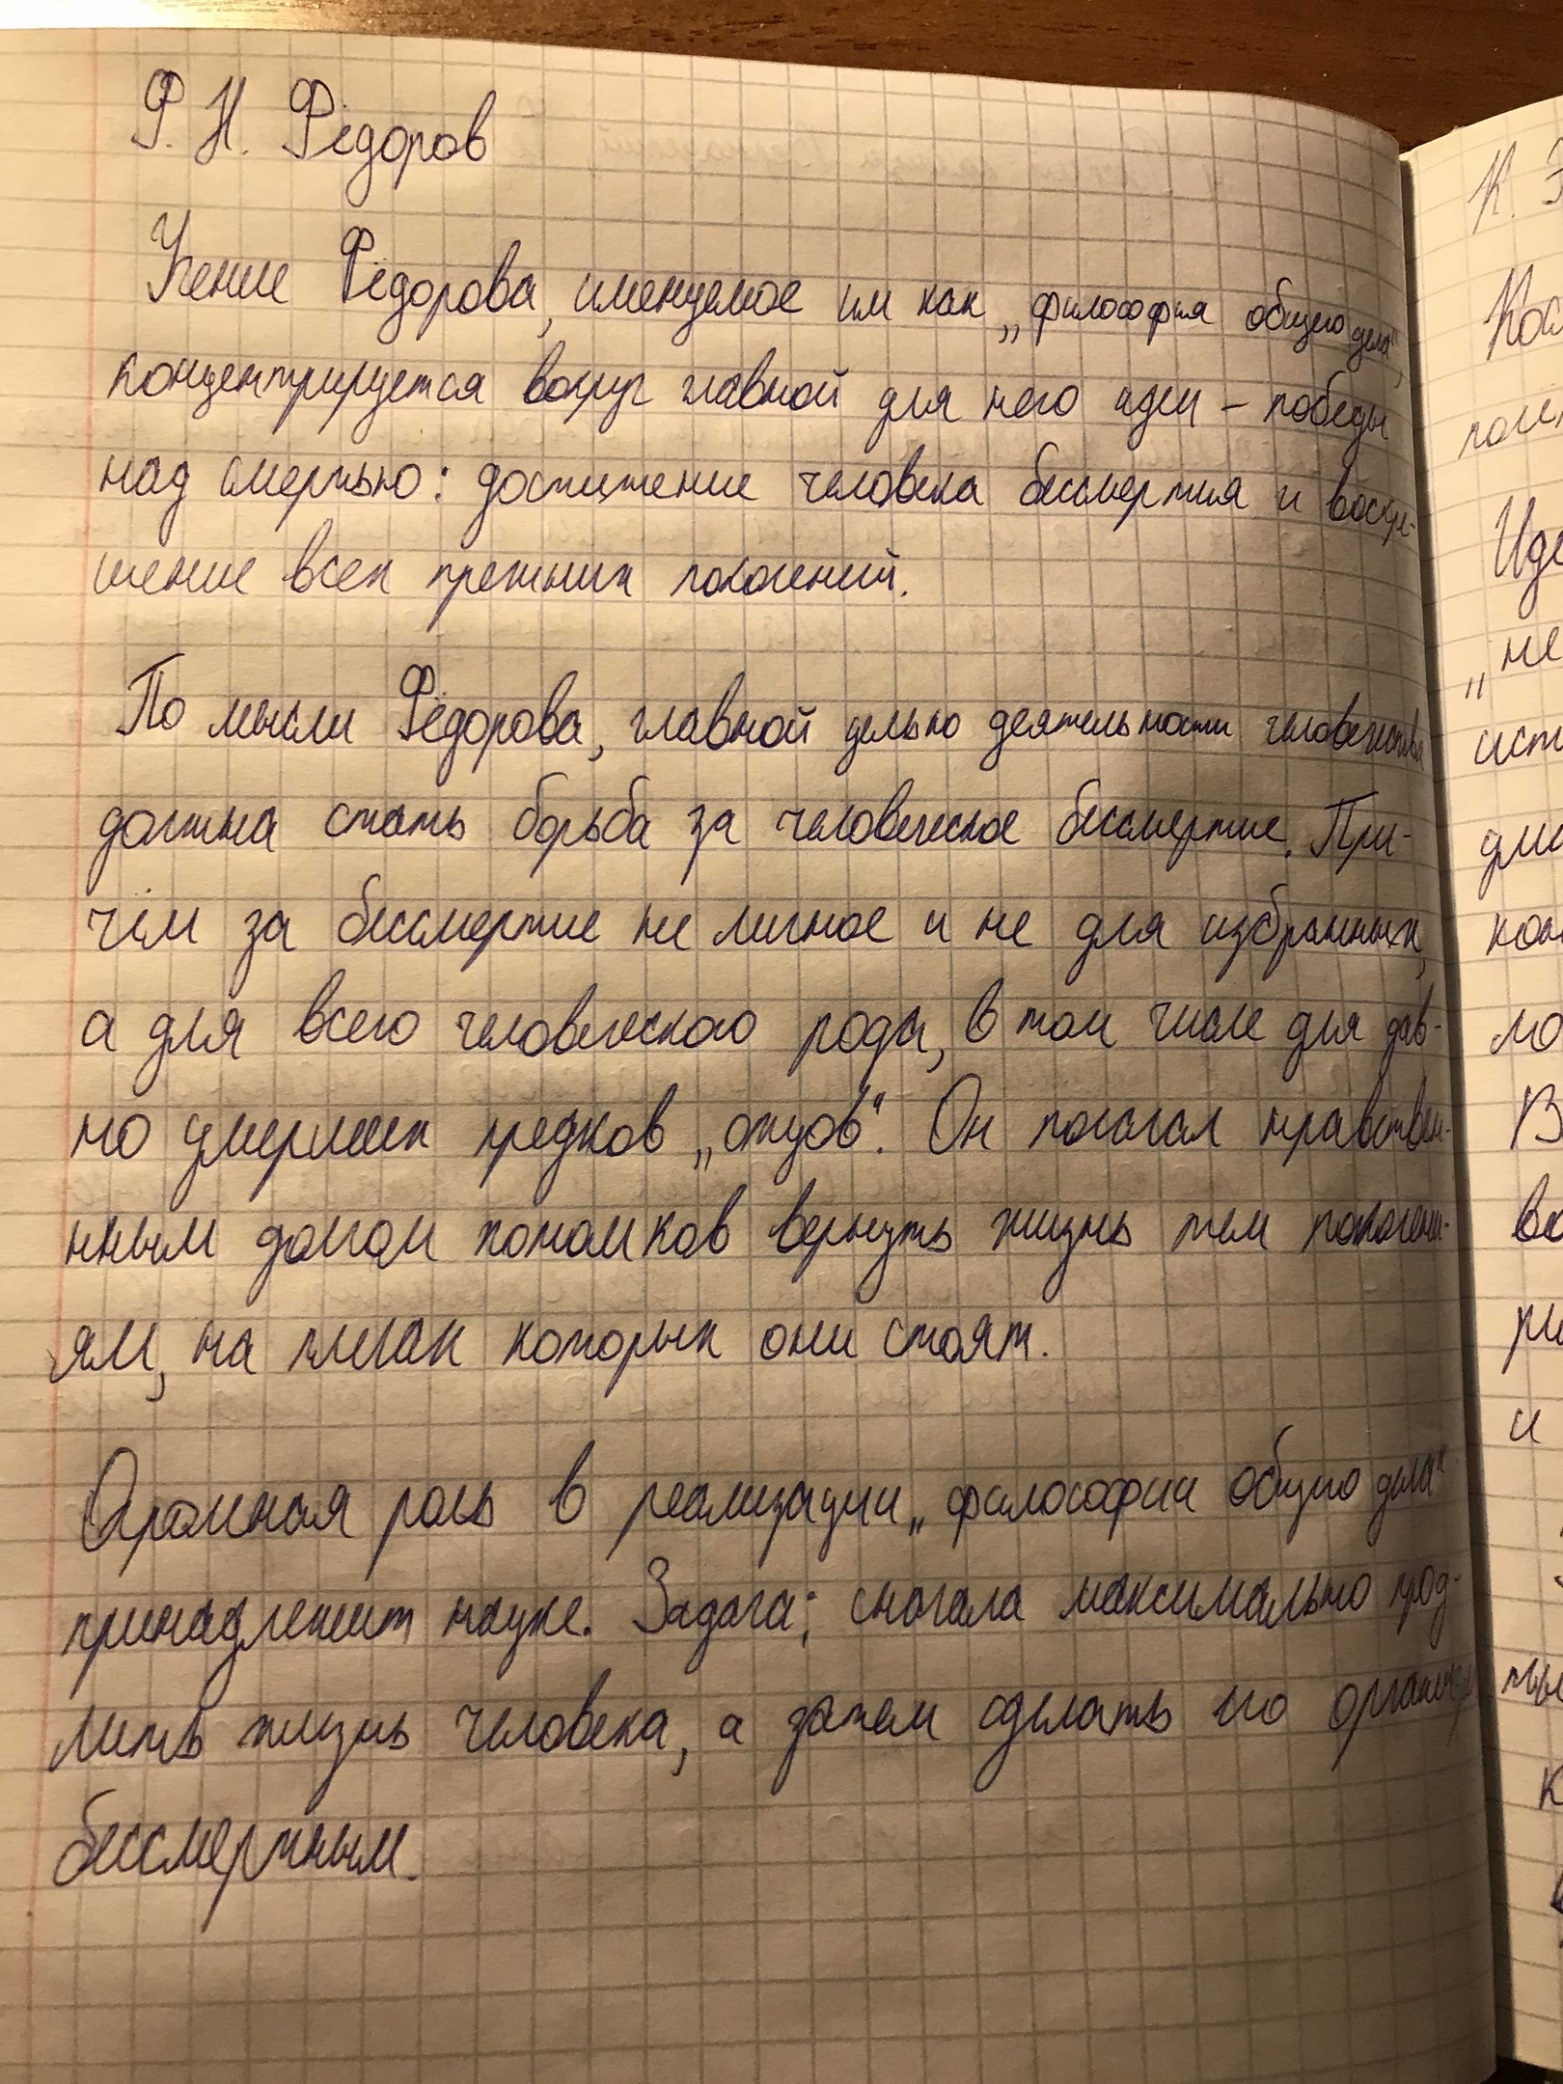 Ф. Н. Фёдоров
Учение Фёдорова, именуемое им как „философия общего дела",
концентрируется вокруг главной для него идеи – победы
над смертью: достижение человека бессмертия и воскре-
шение всех прежних поколений.
По мысли Фёдорова, главной целью деятельности человечества
должна стать борьба за человеческое бессмертие. При-
чём за бессмертие не личное и не для избранных,
а для всего человеческого рода, в том числе для дав-
но умерших предков „отцов". Он полагал нравствен-
нным долгом потомков вернуть жизнь тем поколени-
ям, на плечах которых они стоят.
Огромная роль в реализации „философии общего дела"
принадлежит науке. Задача: сначала максимально прод-
лить жизнь человека, а затем сделать его организм
бессмертным.
К. Э
Идe
„не
ист
В
и